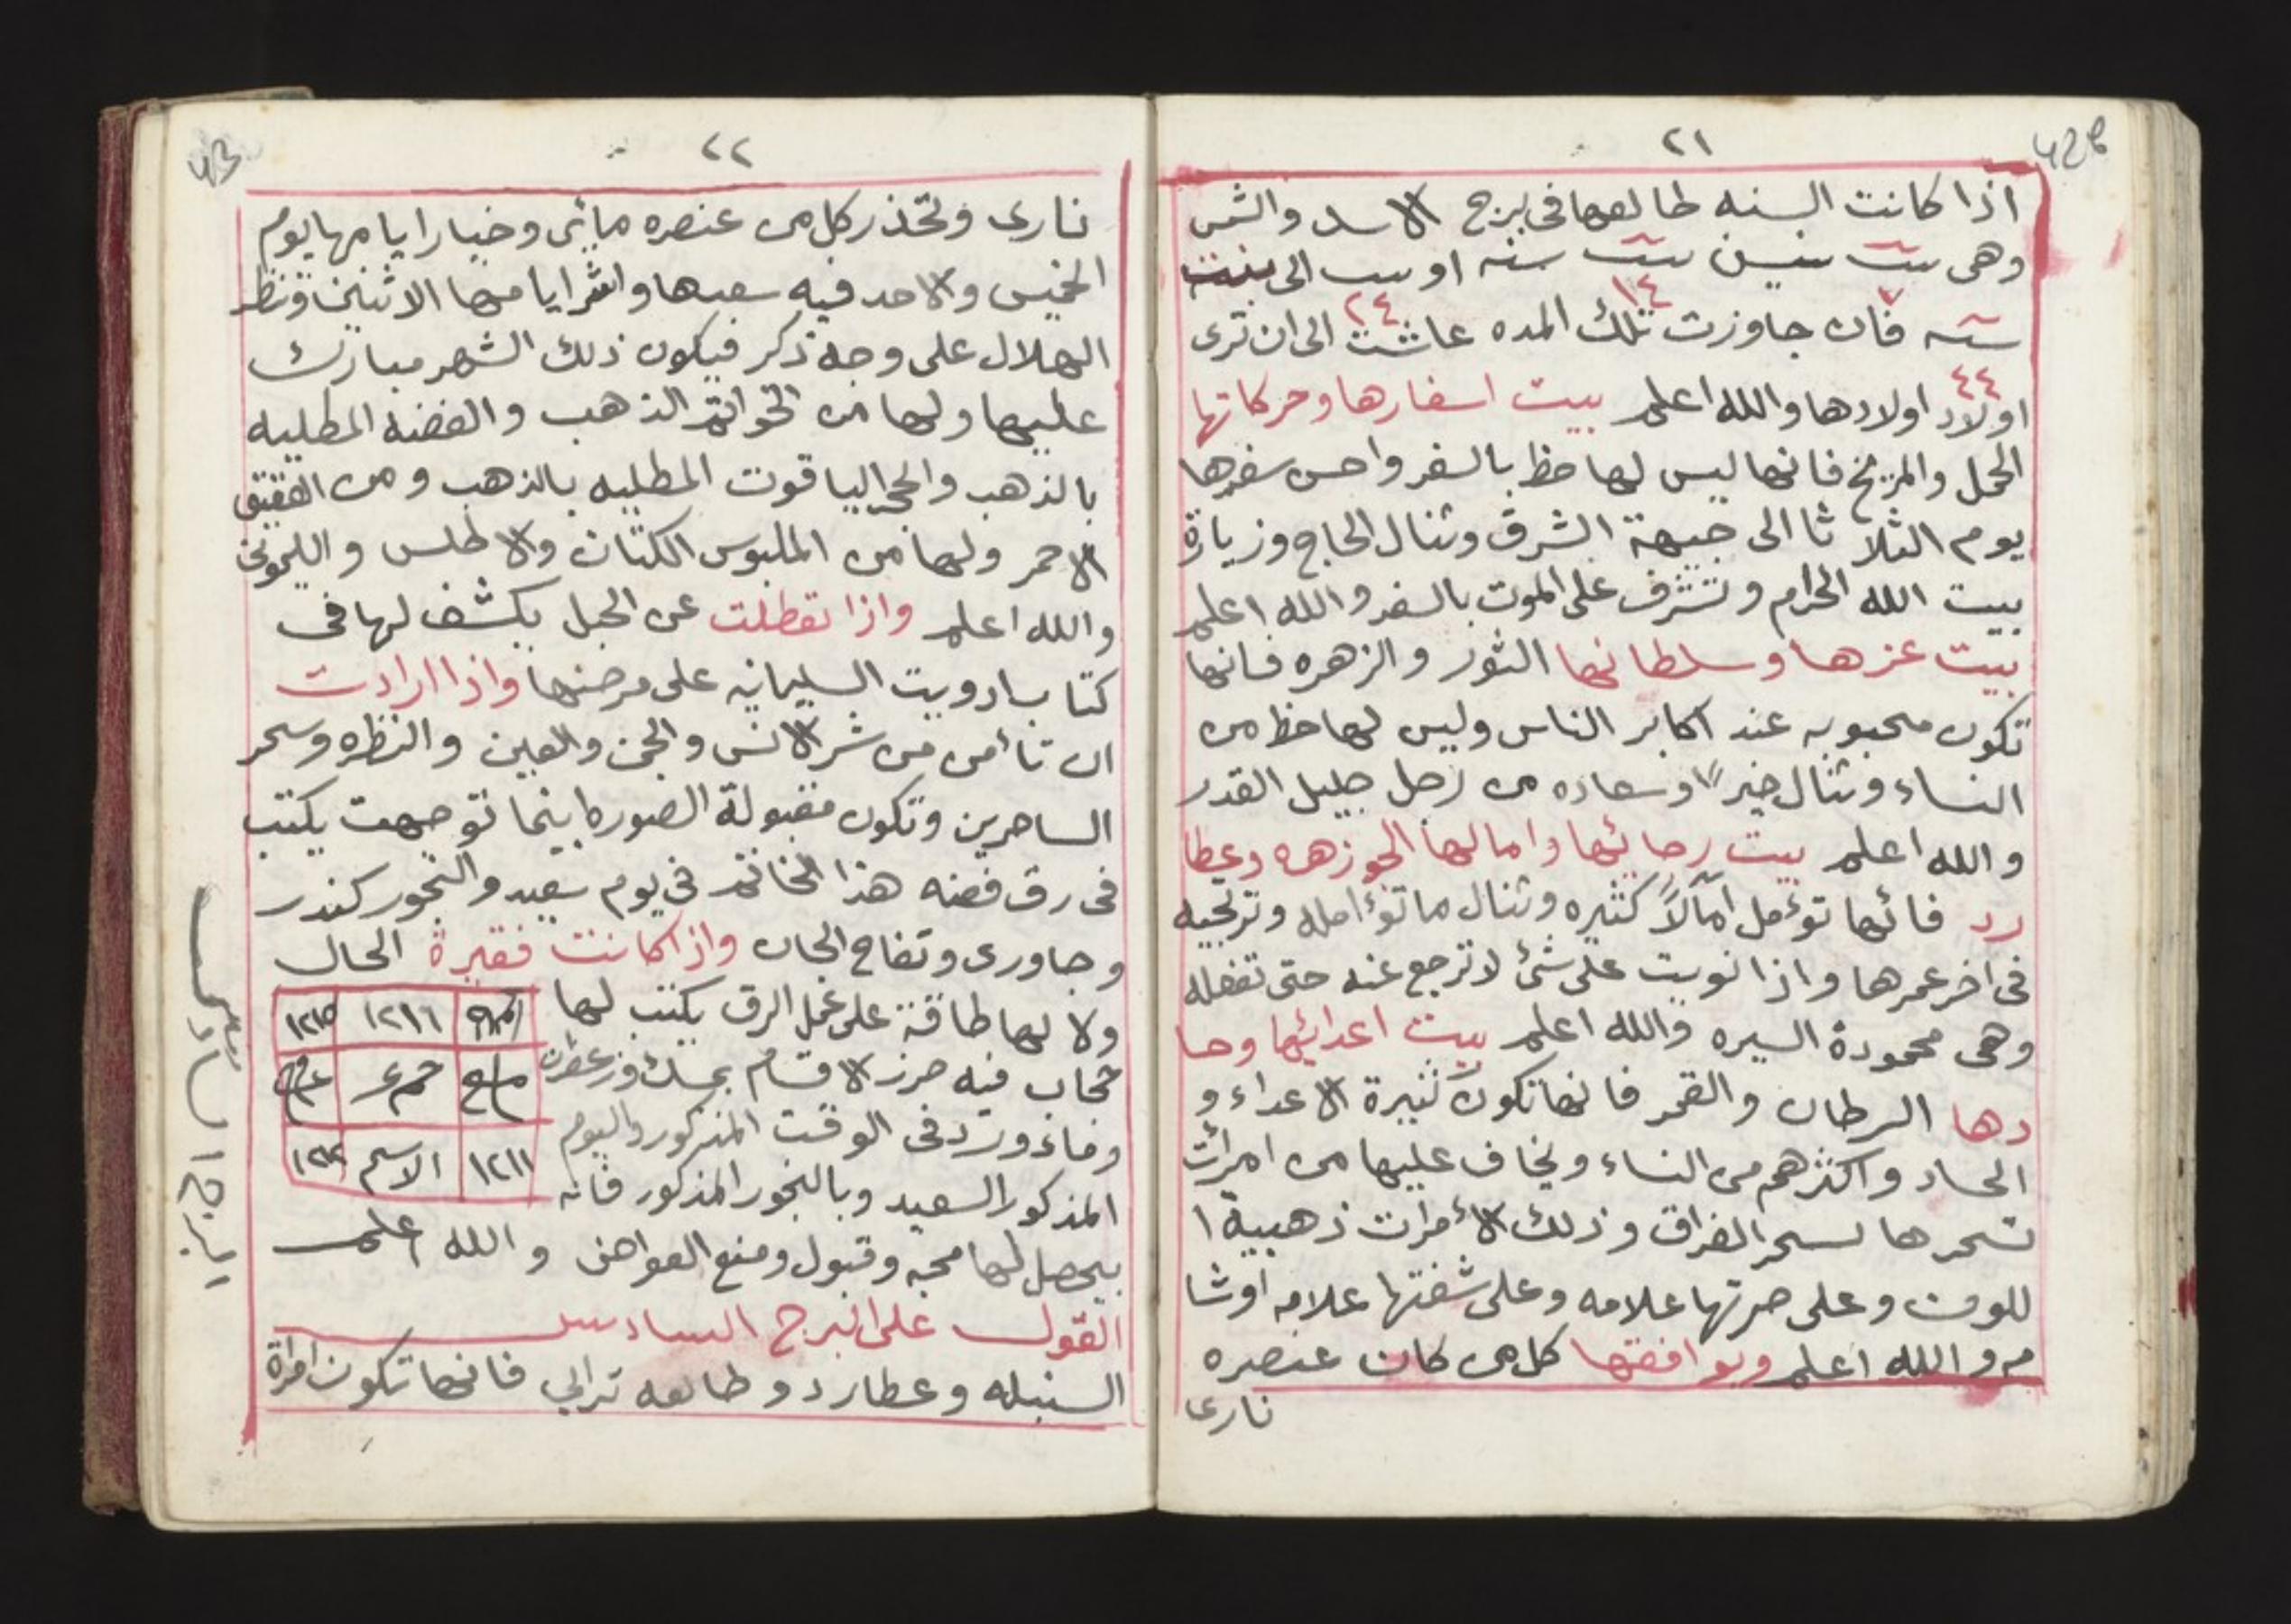 42b
٢١
اذا كانت السنه طالعها فى برج الاسد والشمس
وهى ستت سنين ستت سنه او ست الى
٧ ١٤ ٢٤
سته فان جاوزت تلك المده عاشت الى ان ترى
٤٤
اولاد اولادها والله اعلم بيت اسفارها وحركاتها
الحمل والمريخ فانها ليس لها حظ بالسفر واحسن سفرها
يوم الثلاثا الى جيهة الشرق وتنال الحاج وزيارة
بيت الله الحرام وتشرف على الموت بالسفر والله اعلم
بيت عزها وسلطانها الثور والزهره فانها
تكون محبوبه عند اكابر الناس وليس لها حظ من
النساء وتنال خيراً وسعاده من رجل جليل القدر
والله اعلم بيت رجائها وامالها الجوزهه وعطا
رد فائها تؤمل آمالاً كثيره وتنال ما تؤامله وترتجيه
فى اخر عمرها واذا نويت على شئ لا ترجع عنه حتى تفعله
وهى محمودة السيره والله اعلم بيت اعدائها وحسا
دها السرطان والقمر فانها تكون كثيرة الاعداء و
الحساد واكثرهم من النساء ويخاف عليها من امرأت
تسحرها لسحر الفراق وذلك الأمرات ذهبية ا
للون وعلى صرتها علامه وعلى شفتها علامه اوشا
مه والله اعلم ويوافقها كل من كان عنصره
نارى
43
٢٢
نارى وتحذر كل من عنصره مائى وخيار ايامها يوم
الخميس والاحد فيه سعدها واشر ايامها الاثنين وتنظر
الهلال على وجه ذكر فيكون ذلك الشهر مبارك
عليها ولها من الخواتم الذهب والفضه المطليه
بالذهب والحجر الياقوت المطليه بالذهب ومن العقيق
الاحمر ولها من الملبوس الكتان والاطلس والليمونى
والله اعلم واذا تعطلت عن الحبل يكشف لها فى
كتاب ادويت السليمانيه على مرضها واذا ارادت
ان تأمن من شر الانس والجن والعين والنظره وسحر
الساحرين وتكون مقبولة الصوره اينما توجهت يكتب
فى رق فضه هذا الخاتم فى يوم سعيد والبخور كندر
وجاورى وتفاح الجان واذا كانت فقيرة الحال
ولا لها طاقة على عمل الرق يكتب لها
حجاب فيه حرز الاقسام بمسك وزعفران
وماء ورد فى الوقت المذكور واليوم
المذكور السعيد وبالبخور المذكور فانه
يحصل لها محبه وقبول ومنع العواهن والله اعلم
١٢١٦ ١٢١٥
١٢١١ الاسم
القول على البرج السادس
السنبله وعطارد وطالعه ترابي فانها تكون امراة
البرج السادس